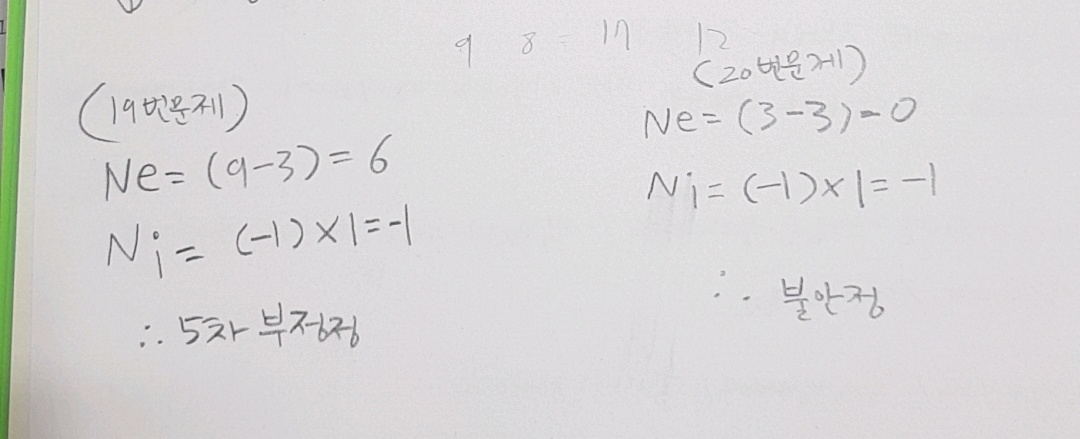 9 8 = 17 12
(19번문제)
Ne = (9-3) = 6
Ni = (-1)×1 = -1
∴ 5차 부정정
(20번문제)
Ne = (3-3) = 0
Ni = (-1)×1 = -1
∴ 불안정